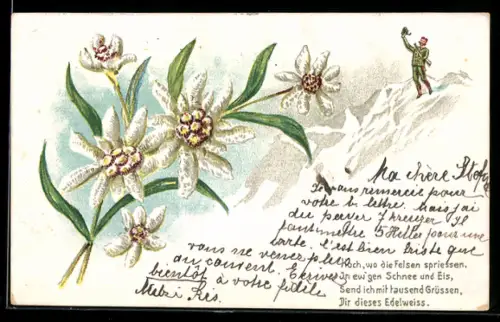 Ma chère
Je vous remercie pour
votre b. lettre. Mais j'ai
du payer 7 kreuzer
5 Heller pour une
carte. C'est bien triste que
vous ne venez plus
au couvent. Ecrivez
bientôt à votre fidèle
Mitzi
Hoch, wo die Felsen spriessen.
In ew'gen Schnee und Eis,
Send ich mit tausend Grüssen,
Dir dieses Edelweiss.